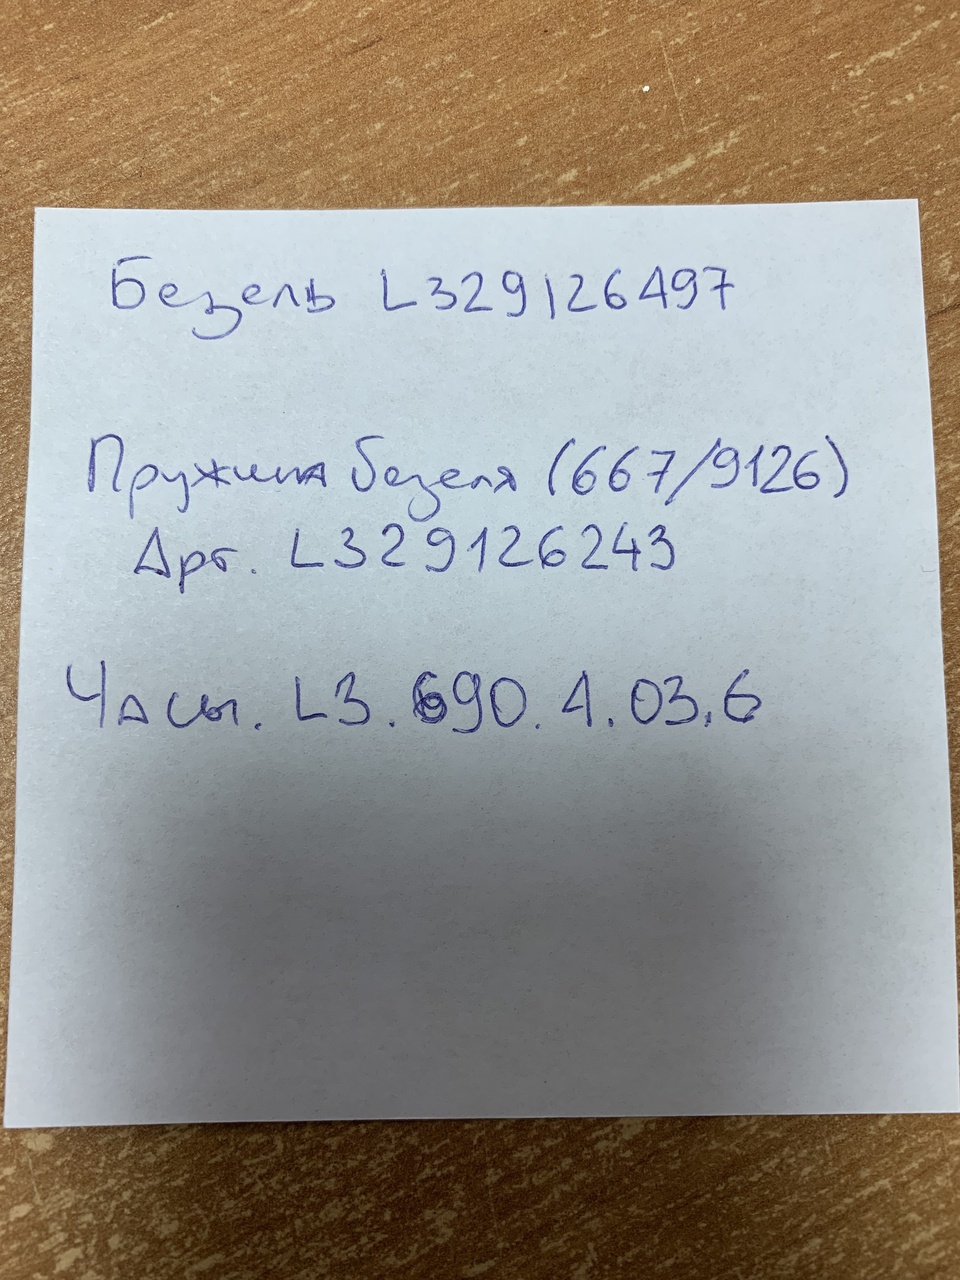 Безель L329126497
Пружина безеля (667/9126)
Арт. L329126243
Часы. L3.690.4.03.6